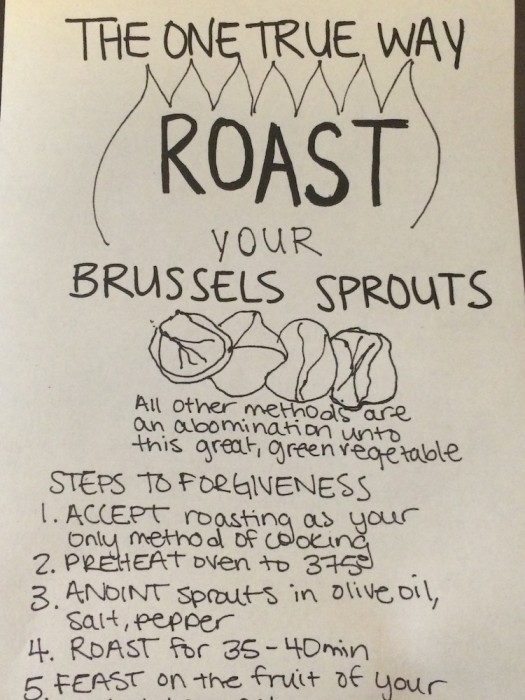 THE ONE TRUE WAY
ROAST
YOUR
BRUSSELS SPROUTS
All other methods are
an abomination unto
this great, green vegetable
STEPS TO FORGIVENESS
1. ACCEPT roasting as your
only method of cooking
2. PREHEAT oven to 375°
3. ANOINT sprouts in olive oil,
salt, pepper
4. ROAST for 35-40min
5. FEAST on the fruit of your